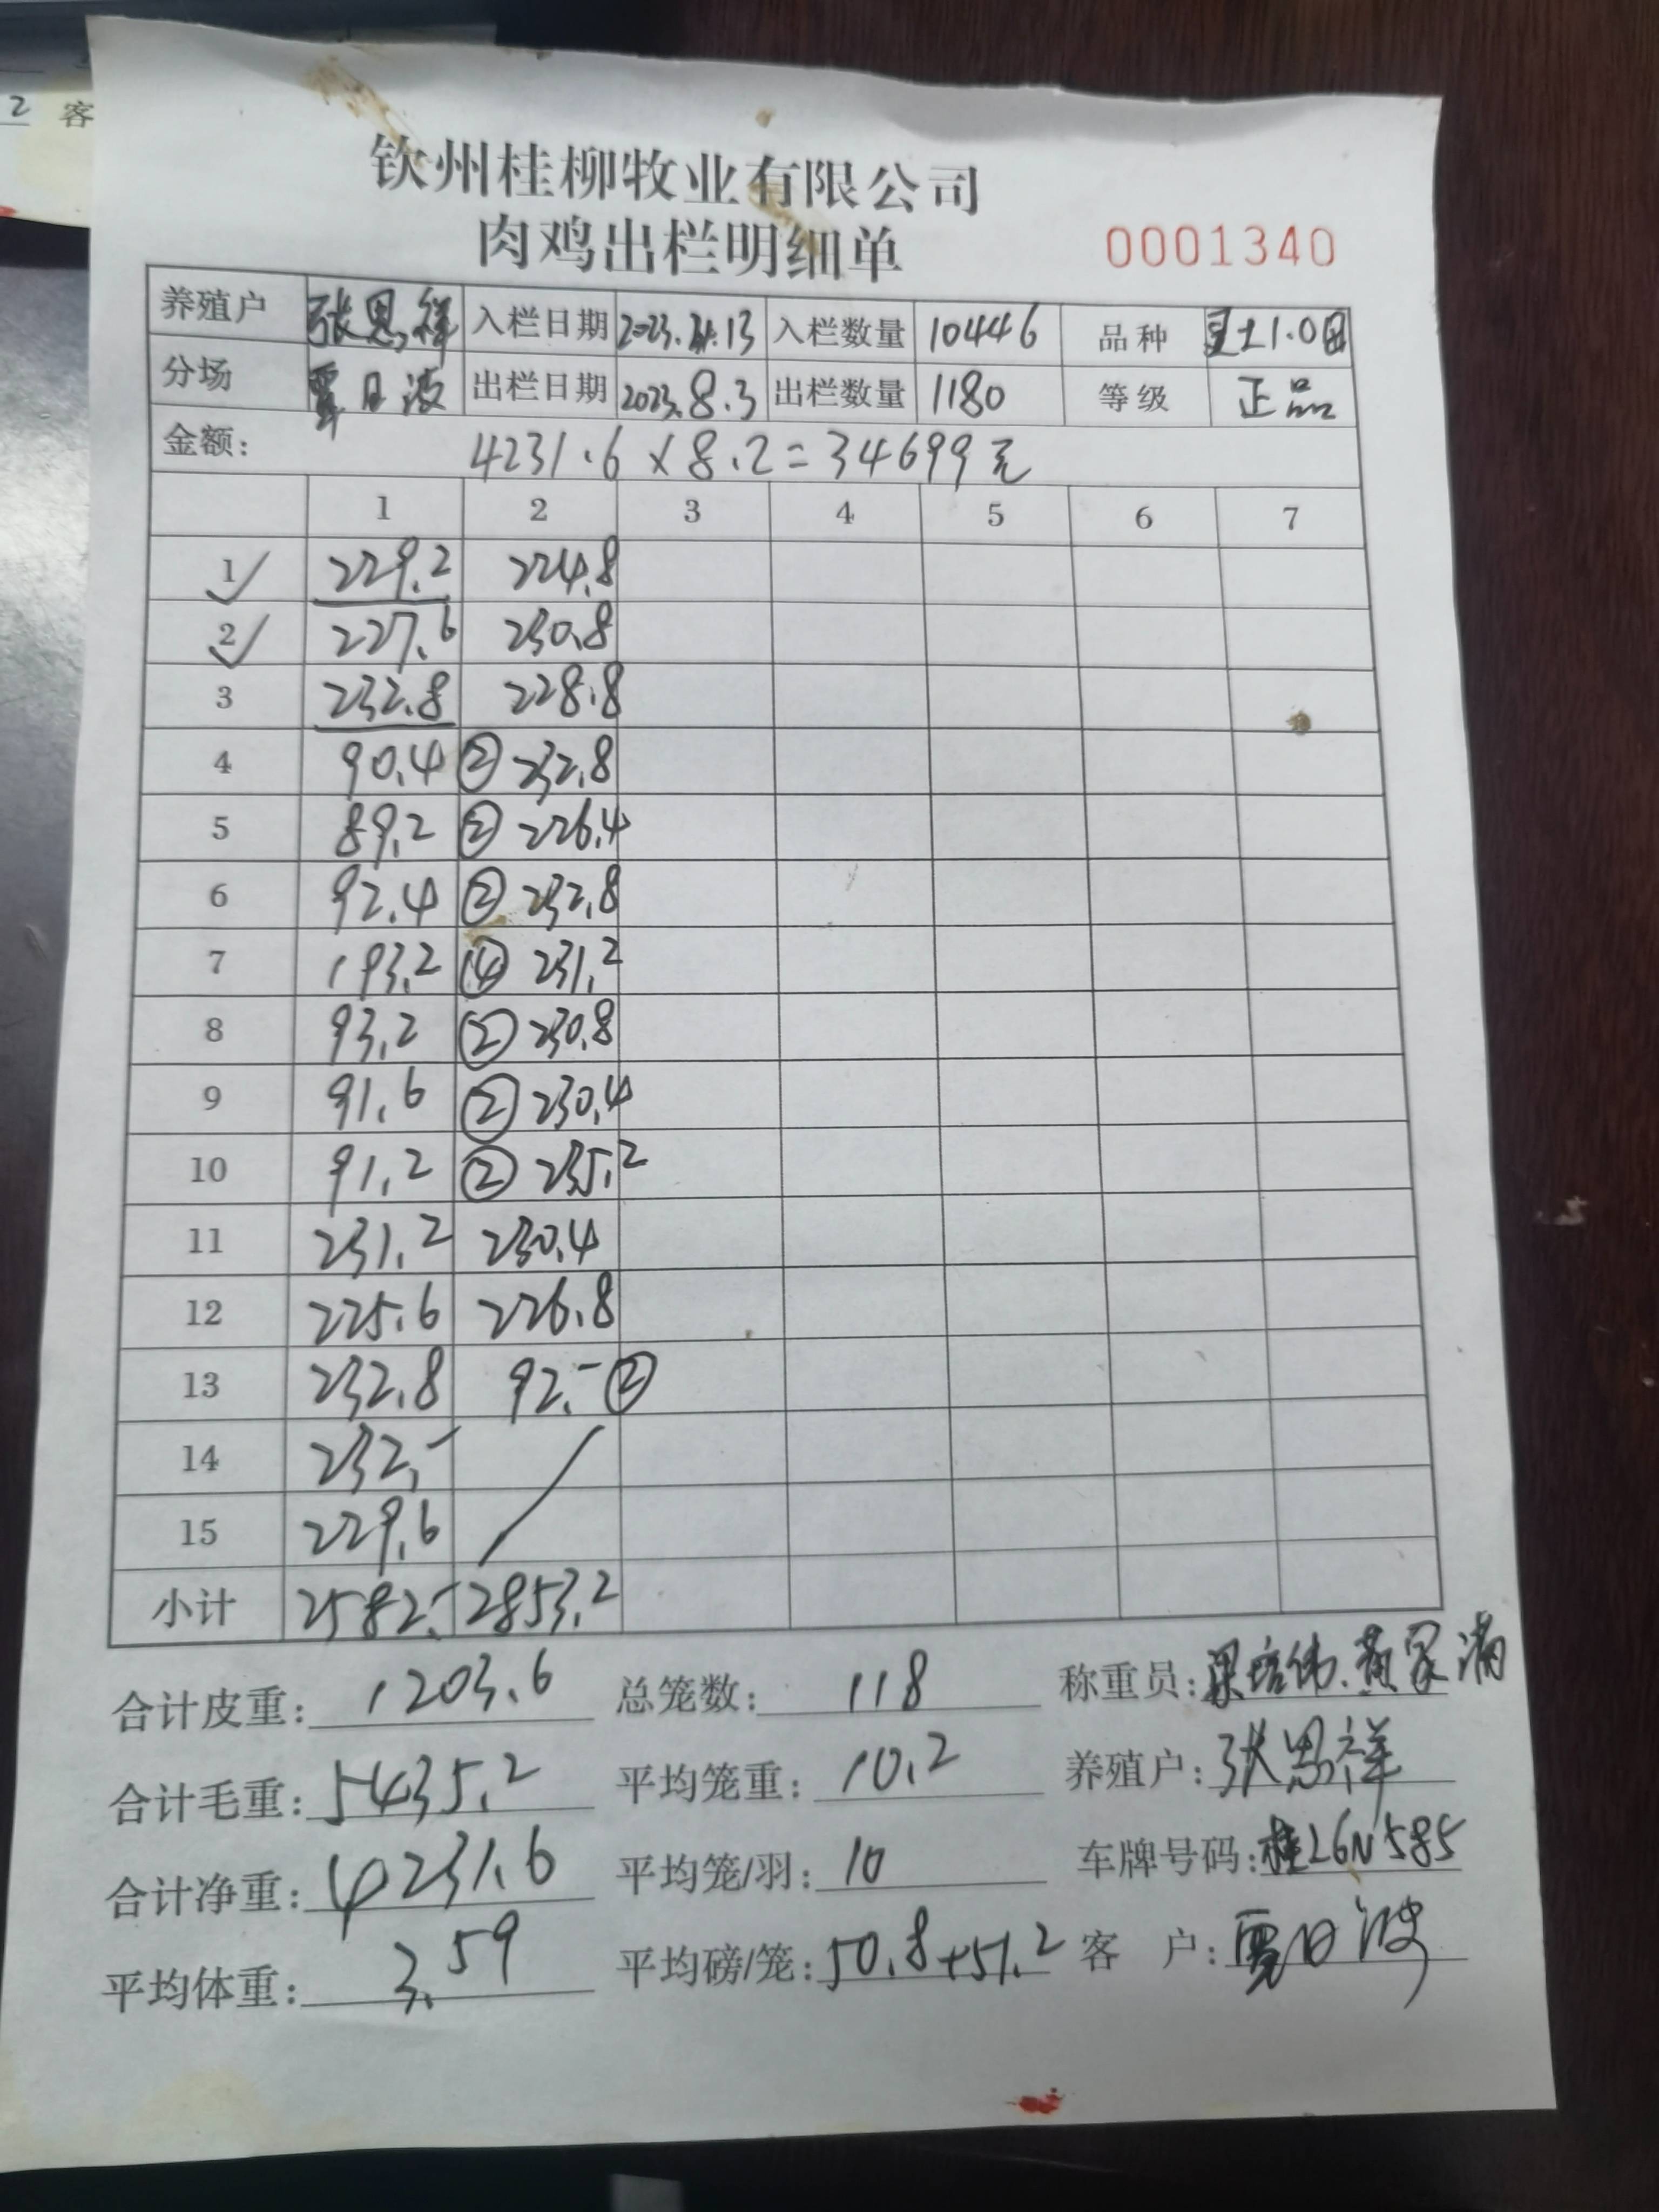 2 客
钦州桂柳牧业有限公司
肉鸡出栏明细单 0001340
养殖户 张恩祥 入栏日期 2023. .13 入栏数量 10446 品种 土1.0
分场 覃日波 出栏日期 2023.8.3 出栏数量 1180 等级 正品
金额: 4231.6×8.2=34699元
1 2 3 4 5 6 7
1 ✓ 229.2 224.8
2 ✓ 227.6 230.8
3 232.8 228.8
4 90.4 ② 232.8
5 89.2 ② 226.4
6 92.4 ② 232.8
7 193.2 ④ 231.2
8 93.2 ② 230.8
9 91.6 ② 230.4
10 91.2 ② 235.2
11 231.2 230.4
12 225.6 226.8
13 232.8 92.- ②
14 232.-
15 229.6
小计 2582.- 2853.2
合计皮重: 1203.6 总笼数: 118 称重员: 梁培伟.黄家满
合计毛重: 5435.2 平均笼重: 10.2 养殖户: 张恩祥
合计净重: 4231.6 平均笼/羽: 10 车牌号码: 桂L6N585
平均体重: 3.59 平均磅/笼: 50.8+51.2 客 户: 覃日波